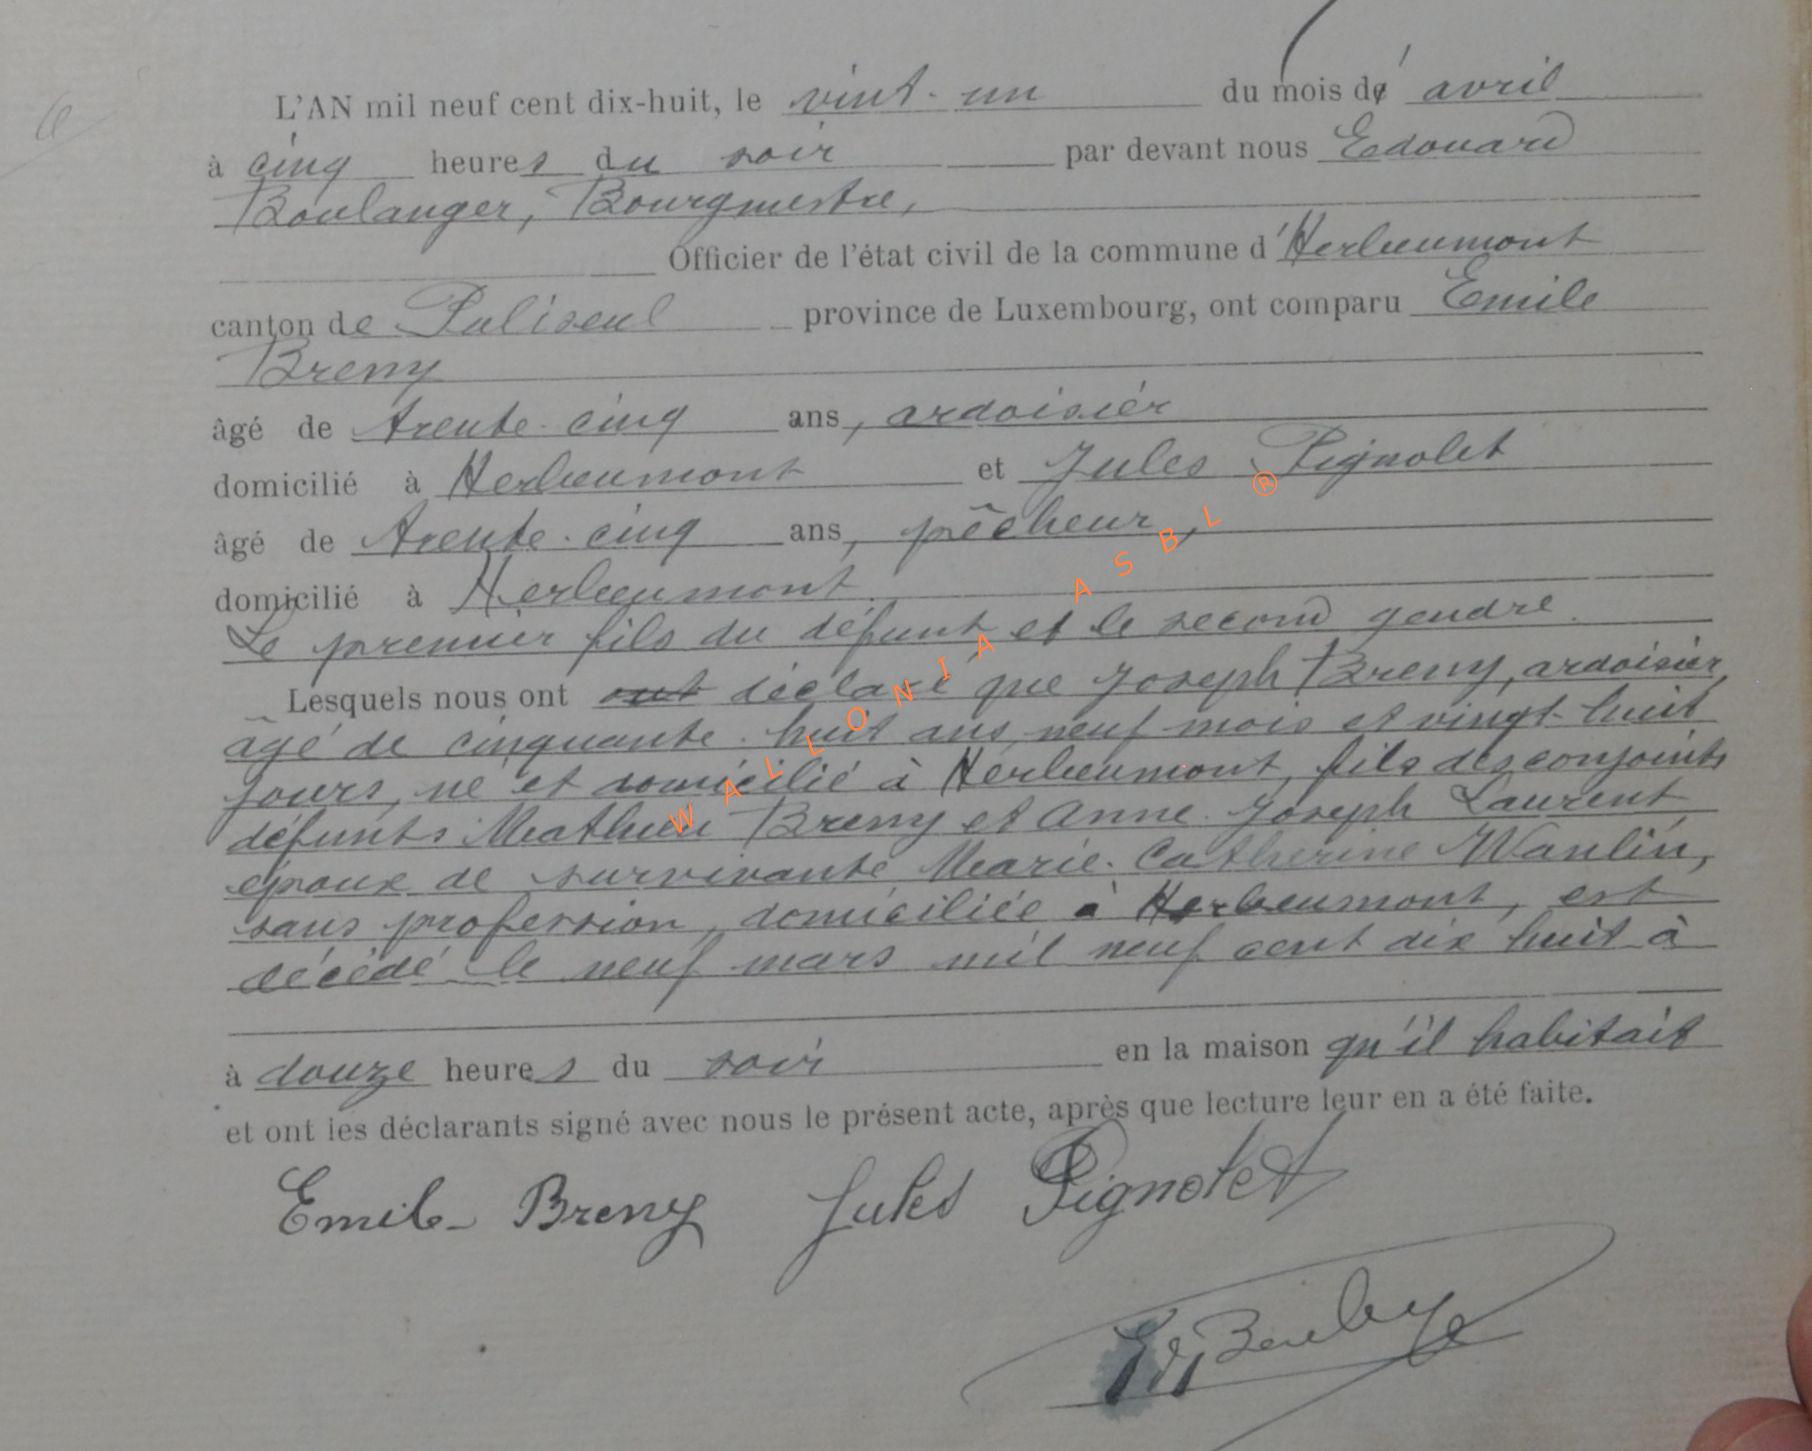 L'AN mil neuf cent dix-huit, le vint-un du mois d' avril
à cinq heures du soir par devant nous Edouard
Boulanger, Bourgmestre,
Officier de l'état civil de la commune d'Herbeumont
canton de Paliseul province de Luxembourg, ont comparu Emile
Breny
âgé de trente-cinq ans, ardoisier
domicilié à Herbeumont et Jules Pignolet
âgé de trente-cinq ans, pêcheur,
domicilié à Herbeumont.
Le premier fils du défunt et le second gendre.
Lesquels nous ont ont déclaré que Joseph Breny, ardoisier,
âgé de cinquante-huit ans, neuf mois et vingt-huit
jours, né et domicilié à Herbeumont, fils des conjoints
défunts Mathieu Breny et Anne-Joseph Laurent,
époux de survivante Marie-Catherine Wanlin,
sans profession, domiciliée à Herbeumont, est
décédé le neuf mars mil neuf cent dix huit à
à douze heures du soir en la maison qu'il habitait
et ont les déclarants signé avec nous le présent acte, après que lecture leur en a été faite.
Emile Breny Jules Pignolet
WALLONIA ASBL ®